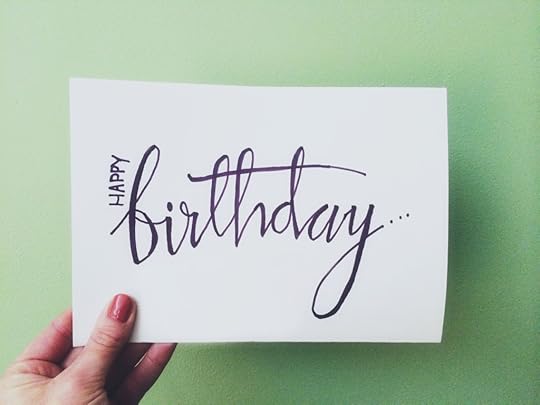 HAPPY
birthday...